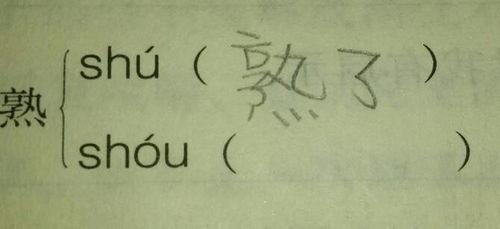 熟
shú（熟了）
shóu（ ）